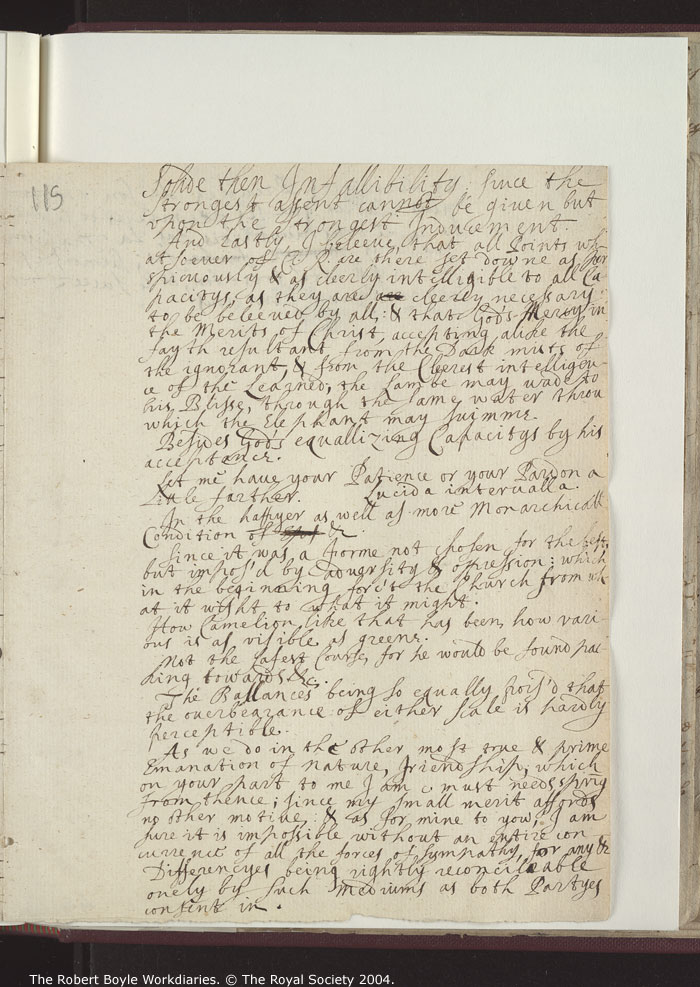 115
then Infallibility; since the
strongest assent cannot be given but
upon the strongest Inducement.
And lastly I beleeve, that all Points wh-
atsoever of are there set downe as per
spicuously & as cleerly intelligible to all Ca-
pacitys, as they are cleerly necessary
to be beleeved by all: & that God's Mercy in
the Merits of Christ, accepting alike the
fayth resultant from the Dark mists of
the ignorant, & from the Cleerest intelligen-
ce of the Learned; the Lambe may wade to
his Blisse, through the same water throu
which the Elephant may swimme.
Besides God's equallizing Capacitys by his
acceptance.
Let me have your Patience or your Pardon a
little farther. Lucida intervalla.
In the happyer as well as more Monarchicall
Condition of &c
Since it was a forme not chosen for the best
but impos'd by adversity & oppression; which
in the beginning forc't the Church from wh-
at it wisht, to what it might.
How Camelion like that has been, how vari-
ous is as visible as greene.
Not the safest Course, for he would be found pac-
king towards &c.
The Ballances being so equally pois'd that
the overbearance of either scale is hardly
perceptible.
As we do in the other most true & prime
Emanation of Nature, Friendship, which
on your part to me I am must needs spring
from thence; since my small merit affords
no other motive: & as for mine to yow, I am
sure it is impossible without an entire con
currence of all the forces of Sympathy, for any &c
Differencyes being rightly reconcileable
onely by such Mediums as both Partyes
consent in.
The Robert Boyle Workdiaries. © The Royal Society 2004.